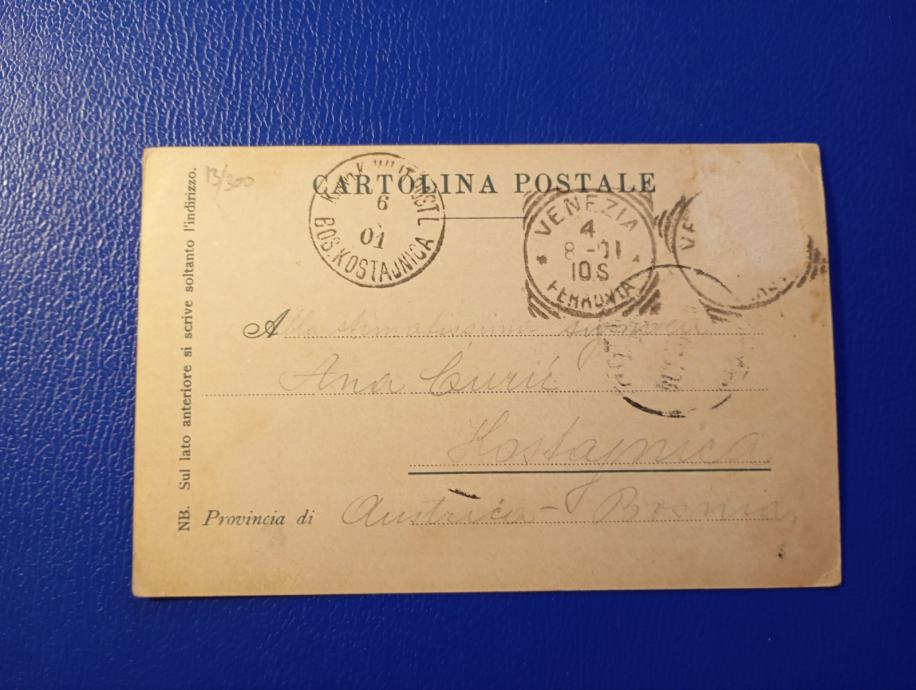 NB. Sul lato anteriore si scrive soltanto l'indirizzo.
13/300
CARTOLINA POSTALE
BOS. KOSTAJNICA
6
01
VENEZIA
4
8-01
10 S
FERROVIA
VE
Alla
Ana Curić
Kostajnica
Provincia di Austria - Bosnia